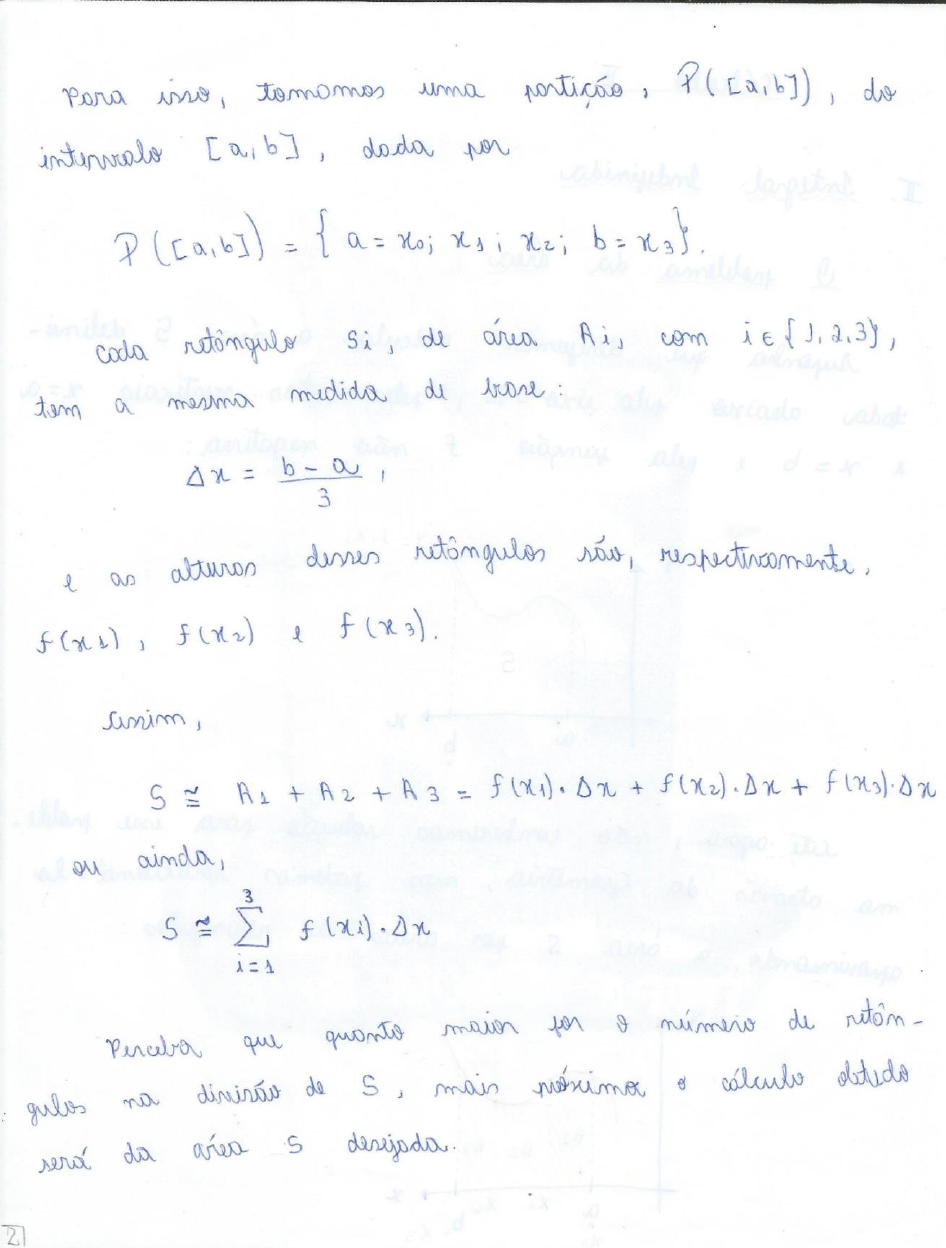 Para isso, tomamos uma partição, P([a,b]), do
intervalo [a,b], dada por
P([a,b]) = { a = x0; x1; x2; b = x3}.
Cada retângulo Si, de área Ai, com i ∈ {1,2,3},
tem a mesma medida de base:
Δx = (b - a)/3,
e as alturas desses retângulos são, respectivamente,
f(x1), f(x2) e f(x3).
Assim,
S ≅ A1 + A2 + A3 = f(x1)·Δx + f(x2)·Δx + f(x3)·Δx
ou ainda,
S ≅ 3∑i=1 f(xi)·Δx
Perceba que quanto maior for o número de retân-
gulos na divisão de S, mais próximo o cálculo obtido
será da área S desejada.
2